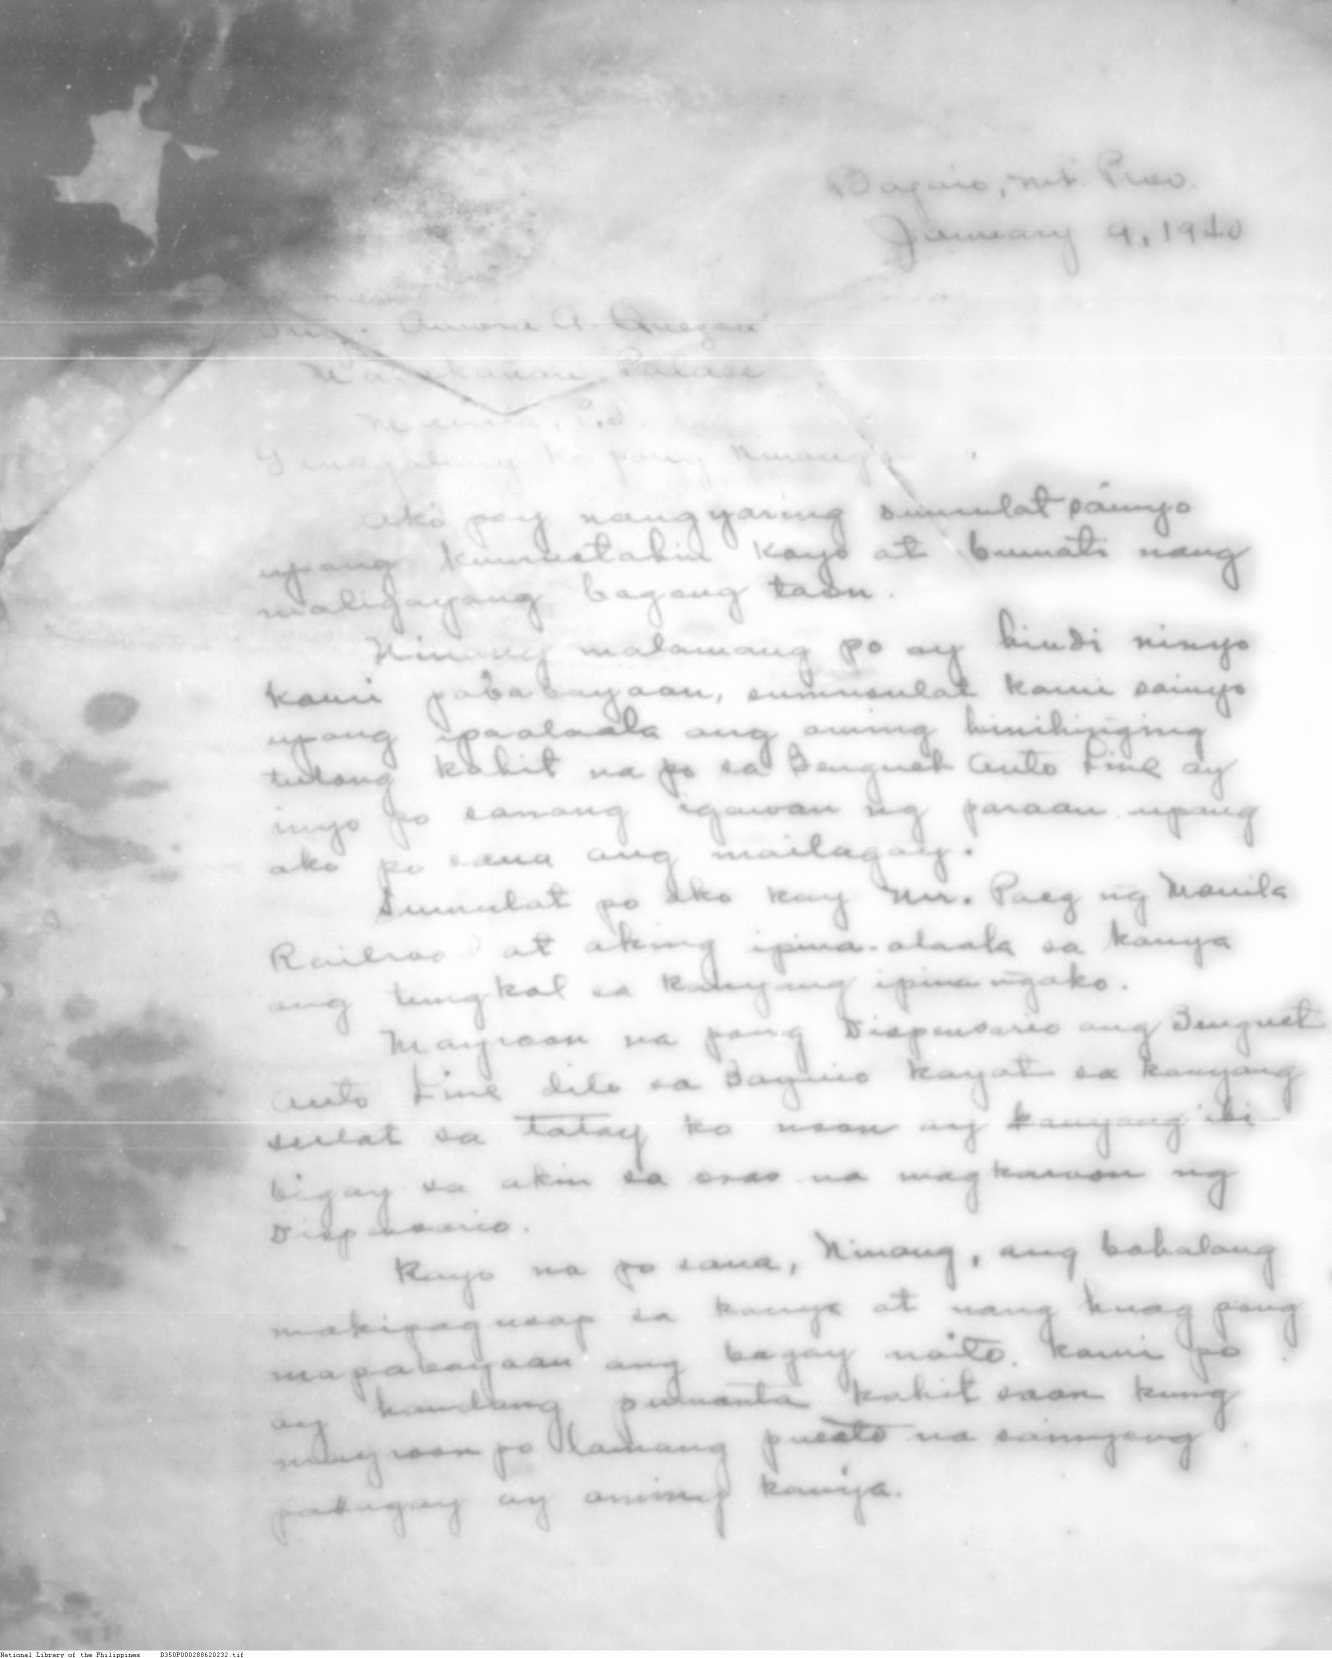 Baguio, Mt. Prov.
January 9, 1940
Aurora A. Quezon
Malakanan Palace
Manila, P.I.
Iginagalang ko pong Ninang,
Ako poy nangyaring sumulat sainyo
upang kumustahin kayo at bumati nang
maligayang bagong taon.
Ninang malamang po ay hindi ninyo
kami pababayaan, sumusulat kami sainyo
upang ipaalaala ang aming hinihinging
tulong kahit na po sa Benguet Auto Line ay
inyo po sanang igawan ng paraan upang
ako po sana ang mailagay.
Sumulat po ako kay Mr. Paez ng Manila
Railroad at aking ipina-alaala sa kanya
ang tungkol sa kanyang ipina ngako.
Mayroon na pong Dispensario ang Benguet
Auto Line dito sa Baguio kayat sa kanyang
sulat sa tatay ko noon ay kanyang ibi
bigay sa akin sa oras na magkaroon ng
Dispensario.
Kayo na po sana, Ninang, ang bahalang
makipagusap sa kanya at nang huag pong
mapabayaan ang bagay naito. Kami po
ay handang pumunta kahit saan kung
mayroon po lamang puesto na sainyong
palagay ay aming kaniya.
National Library of the Philippines D350P000288620232.tif